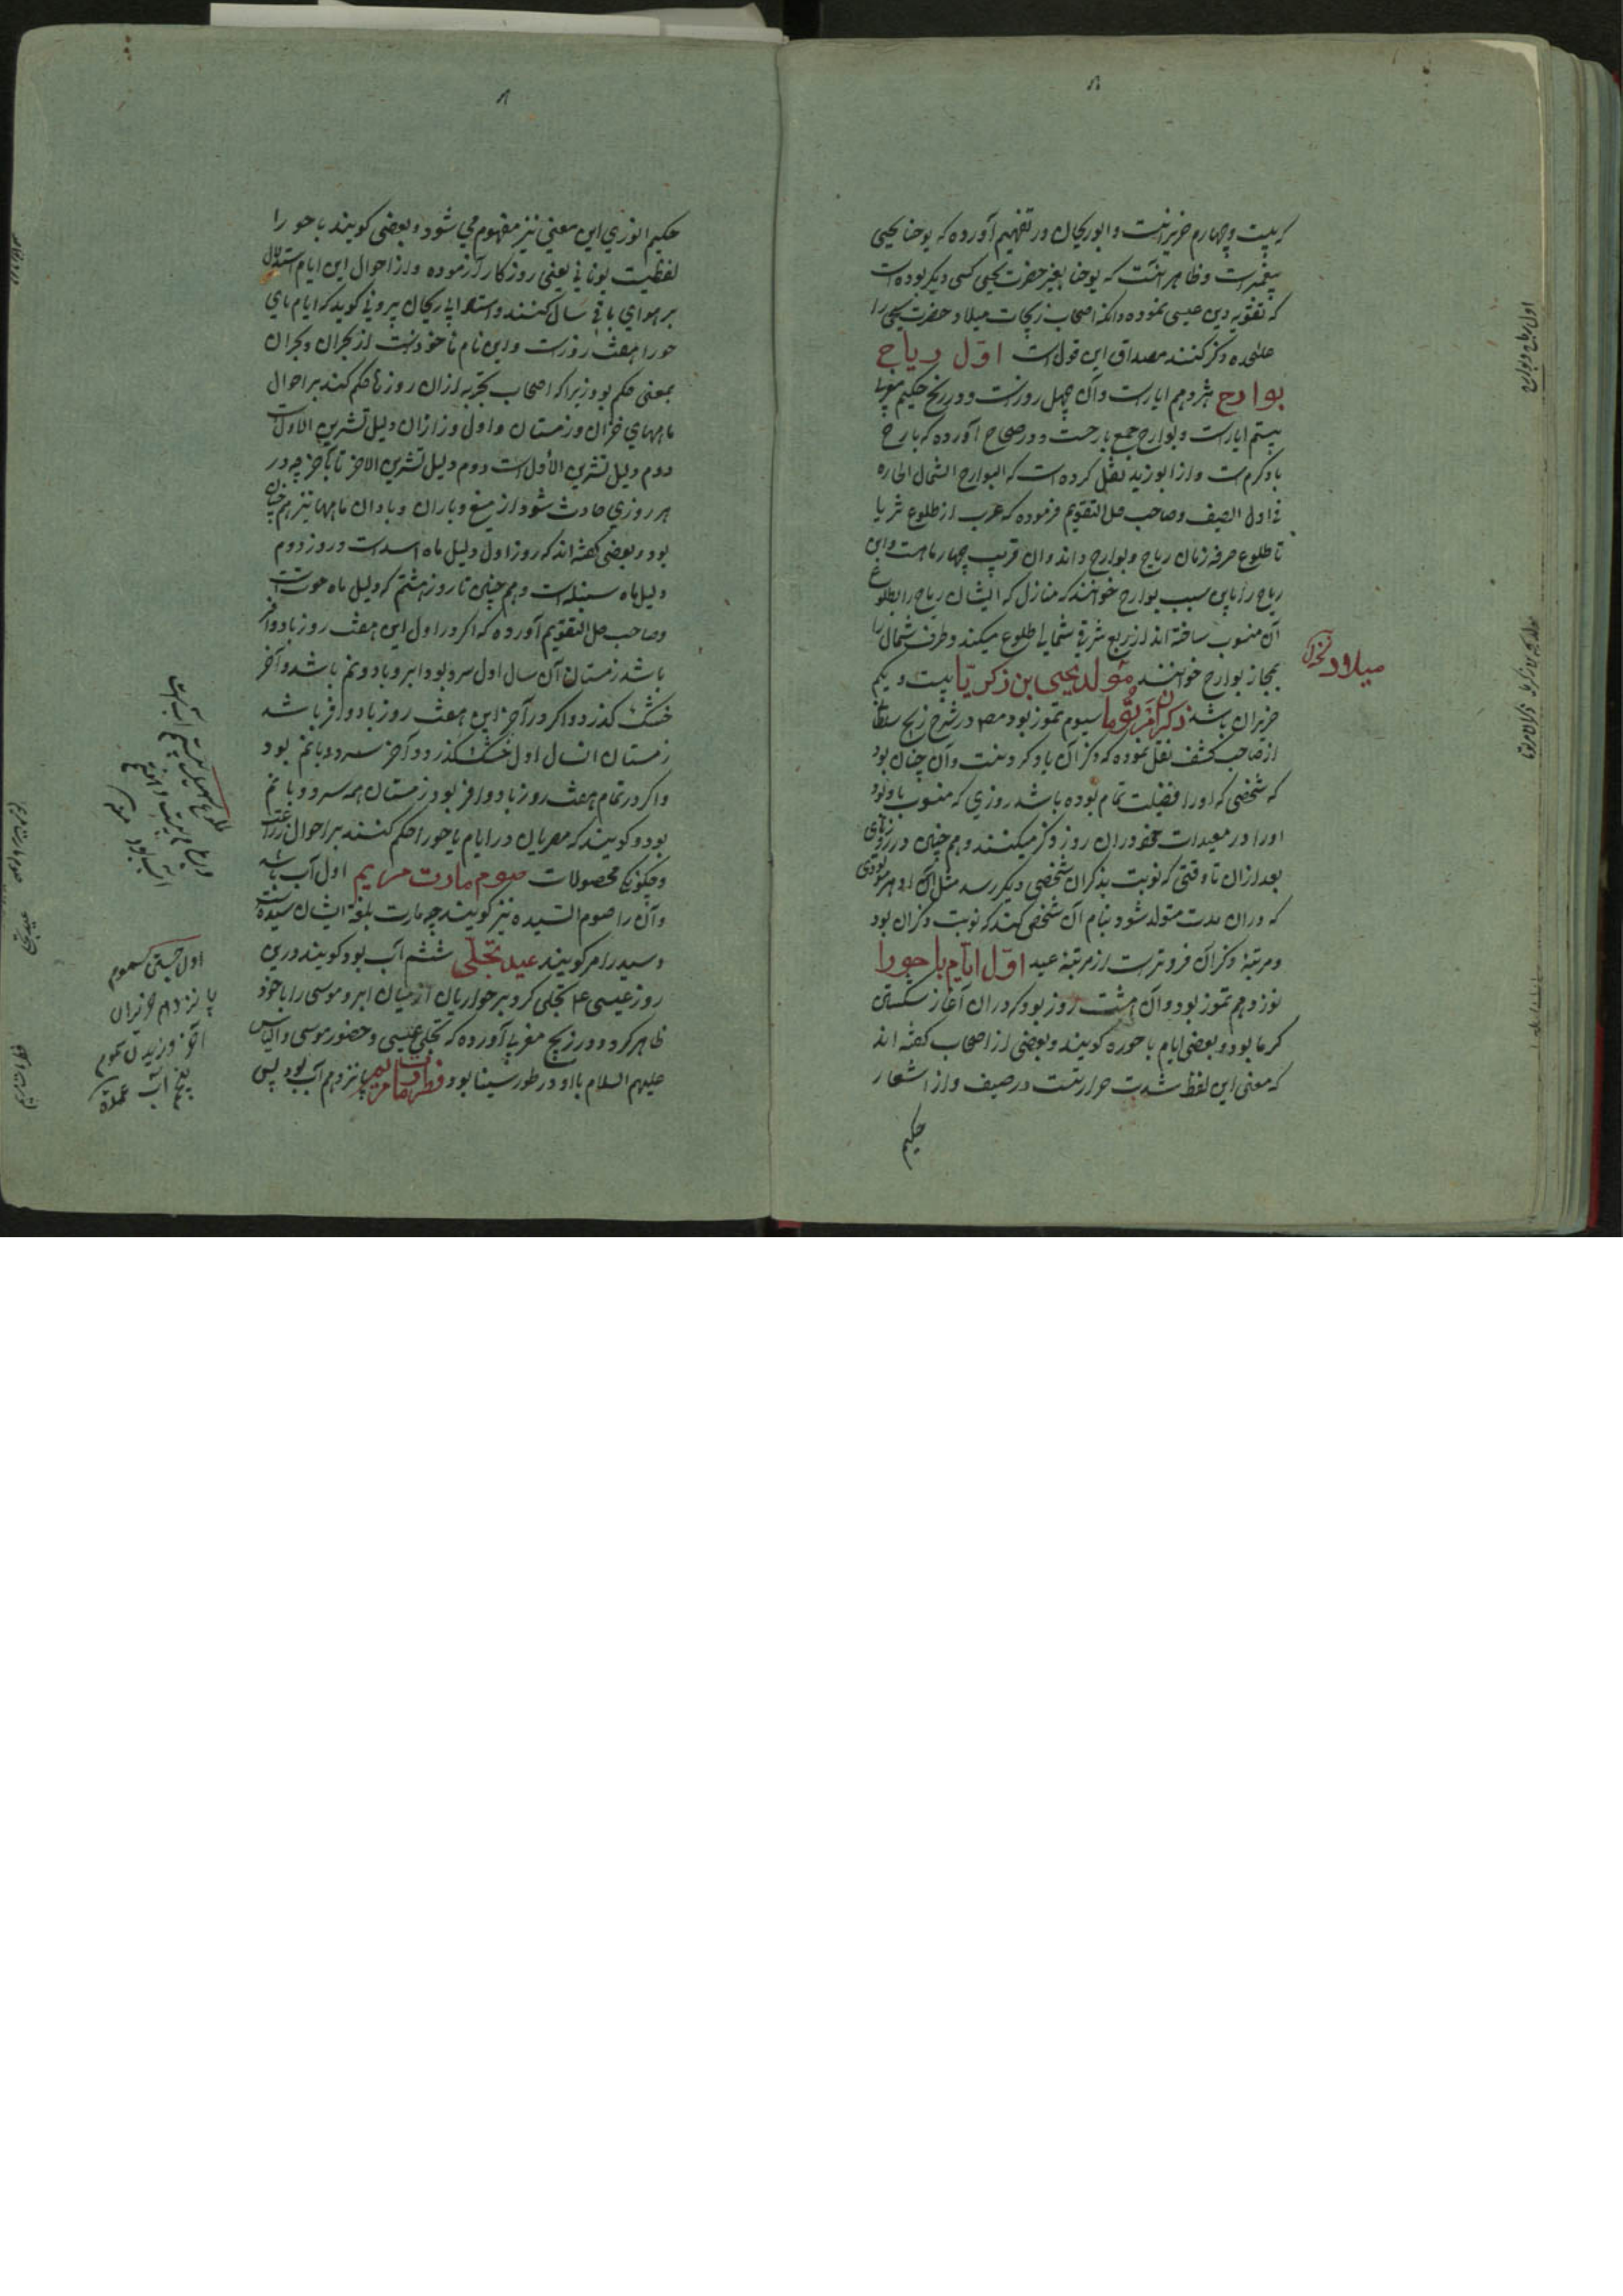 که بیست و چهارم حزیرانست و ابوریحان در تفهیم آورده که یوحنا یحیی
پیغمبرست و ظاهر آنست که یوحنا بغیر حضرت یحیی کسی دیگر بوده است
که تقویه دین عیسی نموده و آنکه اصحاب زیجات میلاد حضرت یحیی را
علیحده ذکر کنند مصداق این قول است اول ریاح
بوارح هژدهم ایارست و آن چهل روزست و در زیج حکیم مغربی
بیستم ایارست و بوارح جمع بارحست و در صحاح آورده که بارح
باد گرم است و از ابو زید نقل کرده است که البوارح الشمال الحاره
فی اول الصیف و صاحب حل التقویم فرموده که عرب از طلوع ثریا
تا طلوع صرفه زمان ریاح و بوارح داند و آن قریب چهار ماهست و این
ریاح را باین سبب بوارح خوانند که منازل که ایشان ریاح را بطلوع
آن منسوب ساخته اند از ربع شرقی شمالی طلوع میکند و طرف شمال را
بمجاز بوارح خوانند مولد یحیی بن زکریا بیست و یکم
حزیران باشد ذکران مرتوما سیوم تموز بود مصه در شرح زیج سلطانی
از صاحب کشف نقل نموده که ذکران یاد کردنست و آن چنان بود
که شخصی که او را فضیلت تمام بوده باشد روزی که منسوب باو بود
او را در معبدات خود در آن روز ذکر میکنند و هم چنین در روزهای
بعد از آن تا وقتی که نوبت بذکران شخصی دیگر رسد مثل آن و هر مولودی
که در آن مدت متولد شود بنام آن شخص کنند که نوبت ذکران بود
و مرتبهٔ ذکران فروترست از مرتبهٔ عید اول ایام باحورا
نوزدهم تموز بود و آن هشت روز بود که در آن آغاز شکستن
گرما بود و بعضی ایام باحوره گویند و بعضی از اصحاب گفته اند
که معنی این لفظ شدت حرارتست در صیف و از اشعار
حکیم
میلاد
اول ریاح و بوارح
حکیم انوری این معنی نیز مفهوم می شود و بعضی گویند باحورا
لفظیست یونانی یعنی روزگار آزموده و از احوال این ایام استدلال
بر هوای باقی سال کنند و استاد ابی ریحان بیرونی گوید که ایام بای
حورا هفت روزست و این نام ماخوذست از بحران و بحران
بمعنی حکم بود زیرا که اصحاب تجربه از آن روزها حکم کنند بر احوال
ماههای خزان و زمستان و اول روز از آن دلیل تشرین الاول است
دوم دلیل تشرین الاول است دوم دلیل تشرین الاخر تا بآخر چه در
هر روزی حادث شود از میغ و باران و باد آن ماهها نیز هم چنان
بود و بعضی گفته اند که روز اول دلیل ماه اسدست و روز دوم
دلیل ماه سنبله است و هم چنین تا روز هشتم که دلیل ماه حوتست
و صاحب حل التقویم آورده که اگر در اول این هفت روز باد وافر
باشد زمستان آن سال اول سرد بود و ابر و باد و نم باشد و آخر
خشک گذرد و اگر در آخر این هفت روز باد وافر باشد
زمستان آنسال اول خشک گذرد و آخر سرد و با نم بود
و اگر در تمام هفت روز باد وافر بود زمستان همه سرد و با نم
بود و گویند که مصریان در ایام باحورا حکم کنند بر احوال زراعت
و چگونگی محصولات صوم مارت مریم اول آب باشد
و آن را صوم السیده نیز گویند چه مارت بلغة ایشان سیده است
و سید را مر گویند عید تجلی ششم آب بود گویند درین
روز عیسی ع تجلی کرد بر حواریان از میان ابر و موسی را با خود
ظاهر کرد و در زیج مغربی آورده که تجلی عیسی و حضور موسی و الیاس
علیهم السلام با او در طور سینا بود فطر مارت مریم پانزدهم آب بود پس
اول جستن سموم
پانزدهم حزیران
آخر وزیدن سموم
پنجم آب
عید تجلی